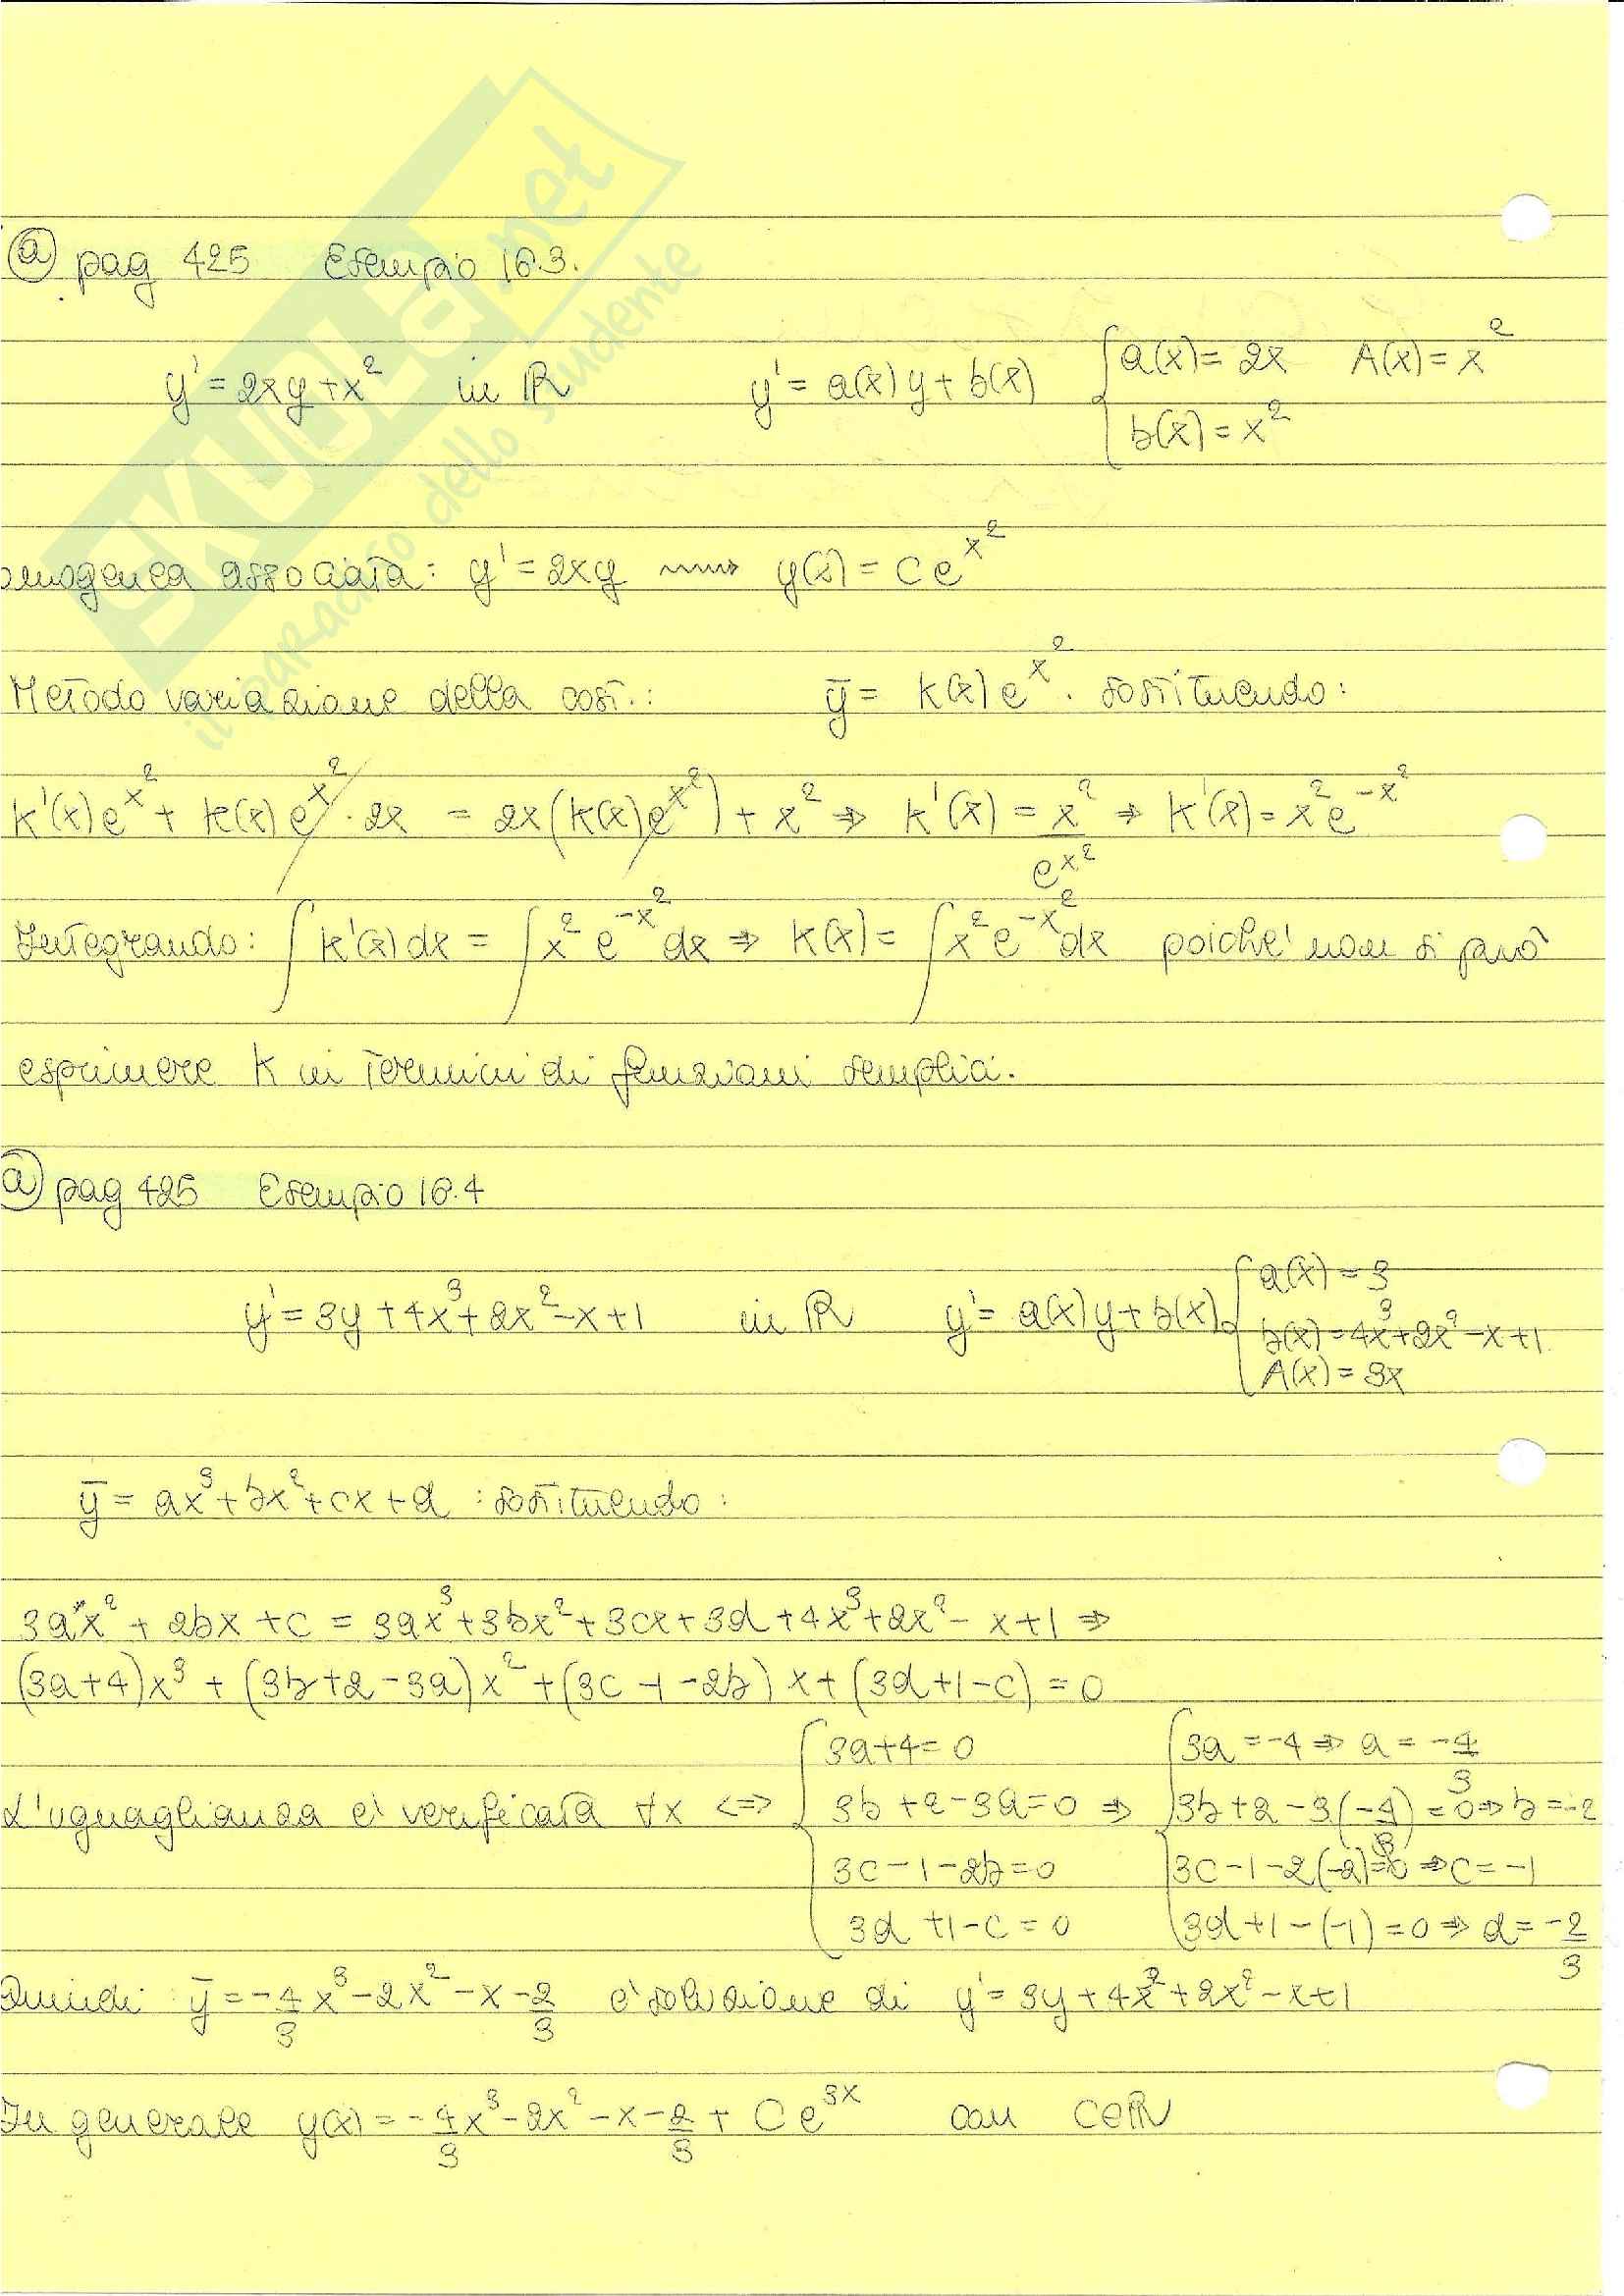 SKUOLA.net
il paradiso dello studente
ⓐ pag 425 Esempio 16.3.
y' = 2xy + x² in ℝ y' = a(x)y + b(x) { a(x) = 2x A(x) = x²
b(x) = x²
omogenea associata: y' = 2xy ⇝ y(x) = C e^{x²}
Metodo variazione della cost.: ȳ = k(x) e^{x²}. sostituendo:
k'(x)e^{x²} + k(x)e^{x²}·2x = 2x(k(x)e^{x²}) + x² ⇒ k'(x) = x²/e^{x²} ⇒ k'(x) = x²e^{-x²}
Integrando: ∫k'(x)dx = ∫x² e^{-x²} dx ⇒ k(x) = ∫x²e^{-x²}dx poiché non si può
esprimere k in termini di funzioni semplici.
ⓐ pag 425 Esempio 16.4
y' = 3y + 4x³ + 2x² - x + 1 in ℝ y' = a(x)y + b(x) { a(x) = 3
b(x) = 4x³ + 2x² - x + 1.
A(x) = 3x
ȳ = ax³ + bx² + cx + d : sostituendo:
3ax² + 2bx + c = 3ax³ + 3bx² + 3cx + 3d + 4x³ + 2x² - x + 1 ⇒
(3a+4)x³ + (3b+2-3a)x² + (3c-1-2b)x + (3d+1-c) = 0
{ 3a+4=0 { 3a=-4 ⇒ a=-4/3
L'uguaglianza è verificata ∀x ⇔ 3b+2-3a=0 ⇒ 3b+2-3(-4/3)=0 ⇒ b=-2
3c-1-2b=0 3c-1-2(-2)=0 ⇒ c=-1
3d+1-c=0 3d+1-(-1)=0 ⇒ d=-2/3
Quindi ȳ = -4/3x³ - 2x² - x - 2/3 è soluzione di y' = 3y + 4x³ + 2x² - x + 1
In generale y(x) = -4/3x³ - 2x² - x - 2/3 + C e^{3x} con C∈ℝ